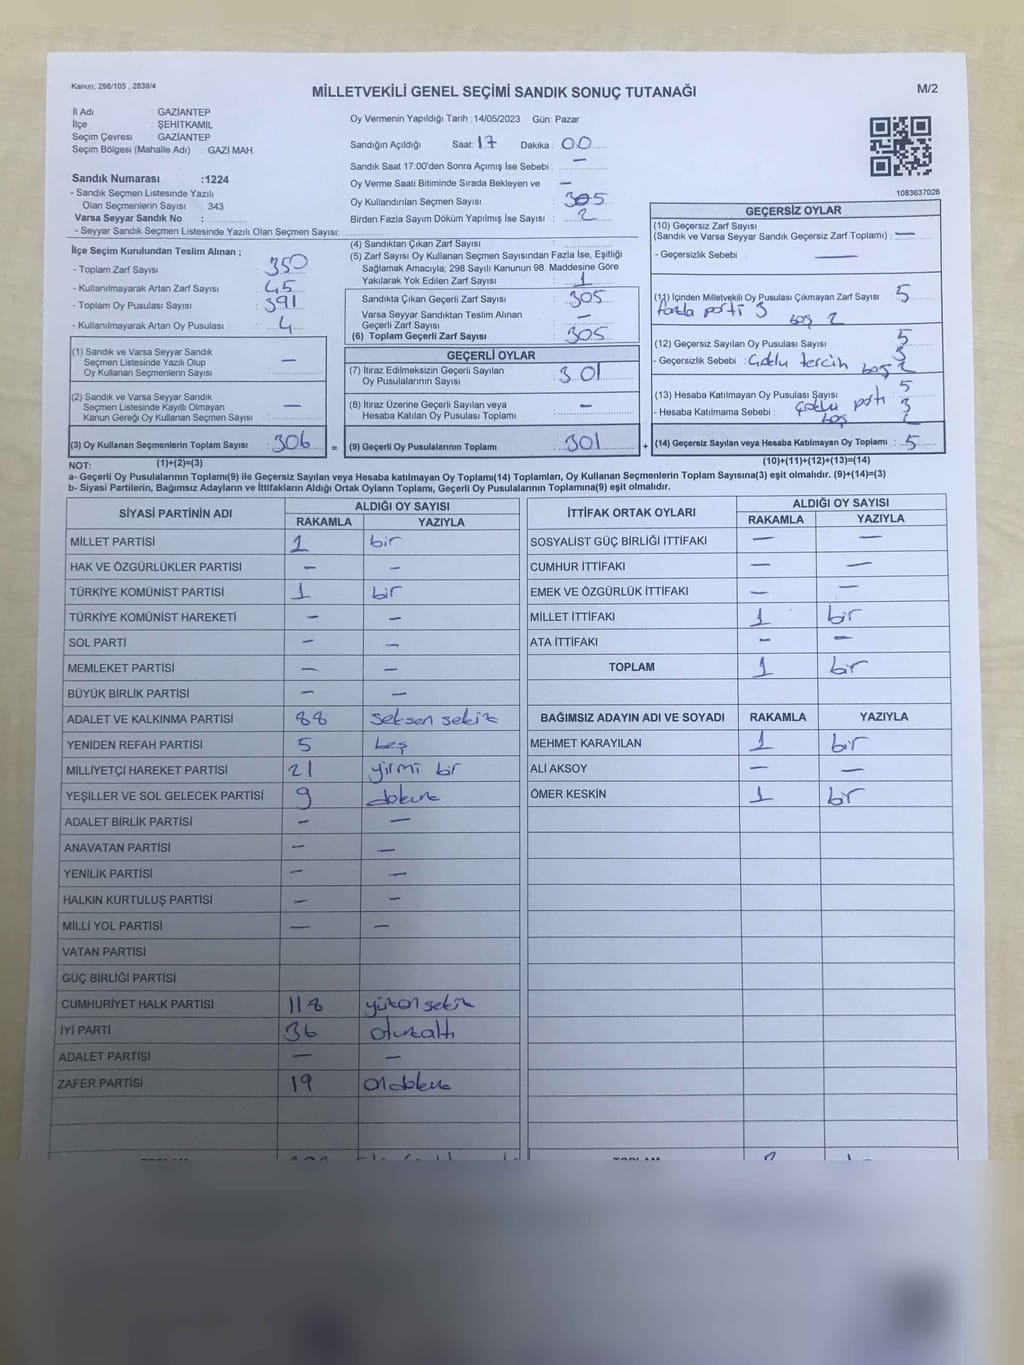 Kanun, 298/105 , 2839/4
MİLLETVEKİLİ GENEL SEÇİMİ SANDIK SONUÇ TUTANAĞI
M/2
İl Adı : GAZİANTEP
İlçe : ŞEHİTKAMİL
Seçim Çevresi : GAZİANTEP
Seçim Bölgesi (Mahalle Adı) : GAZI MAH.
Sandık Numarası :1224
- Sandık Seçmen Listesinde Yazılı
Olan Seçmenlerin Sayısı : 343
Varsa Seyyar Sandık No :
- Seyyar Sandık Seçmen Listesinde Yazılı Olan Seçmen Sayısı:
Oy Vermenin Yapıldığı Tarih :14/05/2023 Gün: Pazar
Sandığın Açıldığı Saat: 17 Dakika : 00
Sandık Saat 17:00'den Sonra Açımış İse Sebebi : —
Oy Verme Saati Bitiminde Sırada Bekleyen ve —
Oy Kullandırılan Seçmen Sayısı : 305
Birden Fazla Sayım Döküm Yapılmış İse Sayısı : 2
1083637026
İlçe Seçim Kurulundan Teslim Alınan ;
- Toplam Zarf Sayısı : 350
- Kullanılmayarak Artan Zarf Sayısı : 45
- Toplam Oy Pusulası Sayısı : 391
- Kullanılmayarak Artan Oy Pusulası : 4
(1) Sandık ve Varsa Seyyar Sandık
Seçmen Listesinde Yazılı Olup
Oy Kullanan Seçmenlerin Sayısı : —
(2) Sandık ve Varsa Seyyar Sandık
Seçmen Listesinde Kayıtlı Olmayan
Kanun Gereği Oy Kullanan Seçmen Sayısı : —
(3) Oy Kullanan Seçmenlerin Toplam Sayısı : 306 =
(1)+(2)=(3)
(4) Sandıktan Çıkan Zarf Sayısı :
(5) Zarf Sayısı Oy Kullanan Seçmen Sayısından Fazla İse, Eşitliği
Sağlamak Amacıyla; 298 Sayılı Kanunun 98. Maddesine Göre
Yakılarak Yok Edilen Zarf Sayısı : 1
Sandıkta Çıkan Geçerli Zarf Sayısı : 305
Varsa Seyyar Sandıktan Teslim Alınan
Geçerli Zarf Sayısı : —
(6) Toplam Geçerli Zarf Sayısı : 305
GEÇERLİ OYLAR
(7) İtiraz Edilmeksizin Geçerli Sayılan
Oy Pusulalarının Sayısı : 301
(8) İtiraz Üzerine Geçerli Sayılan veya
Hesaba Katılan Oy Pusulası Toplamı : —
(9) Geçerli Oy Pusulalarının Toplamı : 301 +
GEÇERSİZ OYLAR
(10) Geçersiz Zarf Sayısı
(Sandık ve Varsa Seyyar Sandık Geçersiz Zarf Toplamı) : —
- Geçersizlik Sebebi : —
(11) İçinden Milletvekili Oy Pusulası Çıkmayan Zarf Sayısı : 5
fazla parti 3
boş 2
(12) Geçersiz Sayılan Oy Pusulası Sayısı : 5
- Geçersizlik Sebebi : çoklu tercih 3
boş 2
(13) Hesaba Katılmayan Oy Pusulası Sayısı : 5
- Hesaba Katılmama Sebebi : çoklu parti 3
boş 2
(14) Geçersiz Sayılan veya Hesaba Katılmayan Oy Toplamı : 5
(10)+(11)+(12)+(13)=(14)
NOT:
a- Geçerli Oy Pusulalarının Toplamı(9) ile Geçersiz Sayılan veya Hesaba katılmayan Oy Toplamı(14) Toplamları, Oy Kullanan Seçmenlerin Toplam Sayısına(3) eşit olmalıdır. (9)+(14)=(3)
b- Siyasi Partilerin, Bağımsız Adayların ve İttifakların Aldığı Ortak Oyların Toplamı, Geçerli Oy Pusulalarının Toplamına(9) eşit olmalıdır.
SİYASİ PARTİNİN ADI ALDIĞI OY SAYISI
RAKAMLA YAZIYLA
MİLLET PARTİSİ 1 bir
HAK VE ÖZGÜRLÜKLER PARTİSİ — —
TÜRKİYE KOMÜNİST PARTİSİ 1 bir
TÜRKİYE KOMÜNİST HAREKETİ — —
SOL PARTİ — —
MEMLEKET PARTİSİ — —
BÜYÜK BİRLİK PARTİSİ — —
ADALET VE KALKINMA PARTİSİ 88 seksen sekiz
YENİDEN REFAH PARTİSİ 5 beş
MİLLİYETÇİ HAREKET PARTİSİ 21 yirmi bir
YEŞİLLER VE SOL GELECEK PARTİSİ 9 dokuz
ADALET BİRLİK PARTİSİ — —
ANAVATAN PARTİSİ — —
YENİLİK PARTİSİ — —
HALKIN KURTULUŞ PARTİSİ — —
MİLLİ YOL PARTİSİ — —
VATAN PARTİSİ
GÜÇ BİRLİĞİ PARTİSİ
CUMHURİYET HALK PARTİSİ 118 yüzonsekiz
İYİ PARTİ 36 otuzaltı
ADALET PARTİSİ — —
ZAFER PARTİSİ 19 ondokuz
İTTİFAK ORTAK OYLARI ALDIĞI OY SAYISI
RAKAMLA YAZIYLA
SOSYALIST GÜÇ BİRLİĞİ İTTİFAKI — —
CUMHUR İTTİFAKI — —
EMEK VE ÖZGÜRLÜK İTTİFAKI — —
MİLLET İTTİFAKI 1 bir
ATA İTTİFAKI — —
TOPLAM 1 bir
BAĞIMSIZ ADAYIN ADI VE SOYADI RAKAMLA YAZIYLA
MEHMET KARAYILAN 1 bir
ALİ AKSOY — —
ÖMER KESKİN 1 bir